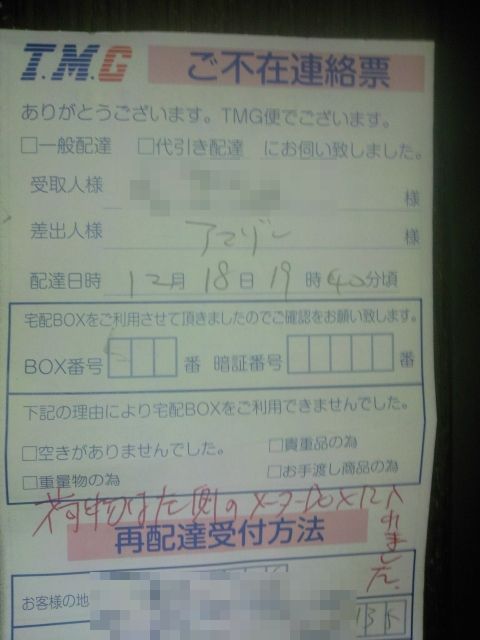 T.M.G ご不在連絡票
ありがとうございます。TMG便でございます。
□一般配達 □代引き配達 にお伺い致しました。
受取人様 様
差出人様 アマゾン 様
配達日時 12月 18日 19時40分頃
宅配BOXをご利用させて頂きましたのでご確認をお願い致します。
BOX番号 番 暗証番号 番
下記の理由により宅配BOXをご利用できませんでした。
□空きがありませんでした。 □貴重品の為
□重量物の為 □お手渡し商品の為
荷物は左側のメーターBOXに入れました。
再配達受付方法
お客様の地